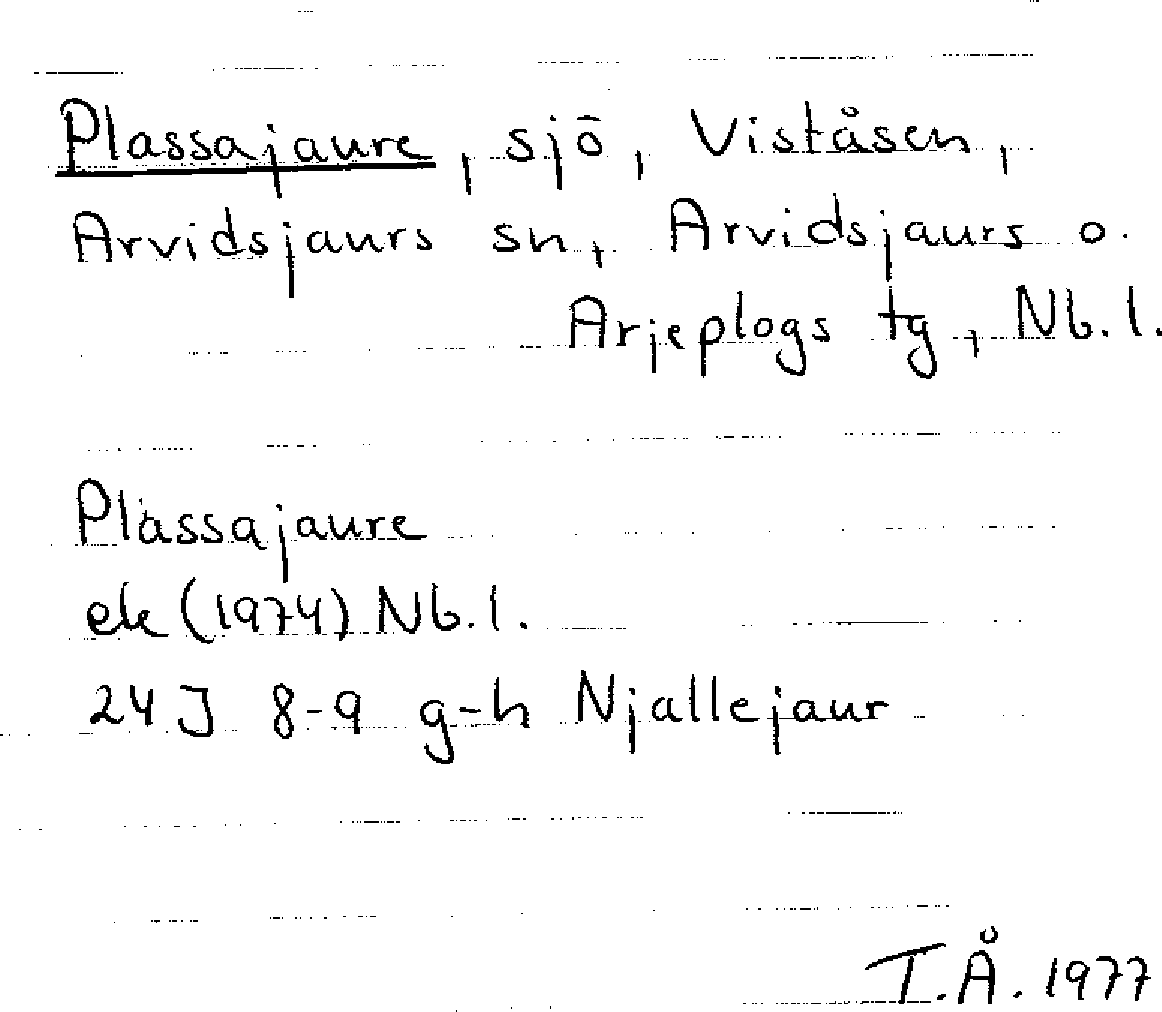 Plassajaure, sjö, Viståsen,
Arvidsjaurs sn, Arvidsjaurs o.
Arjeplogs tg, Nb.l.
Plassajaure
ek (1974) Nb.l.
24J 8-9 g-h Njallejaur
T.Å. 1977